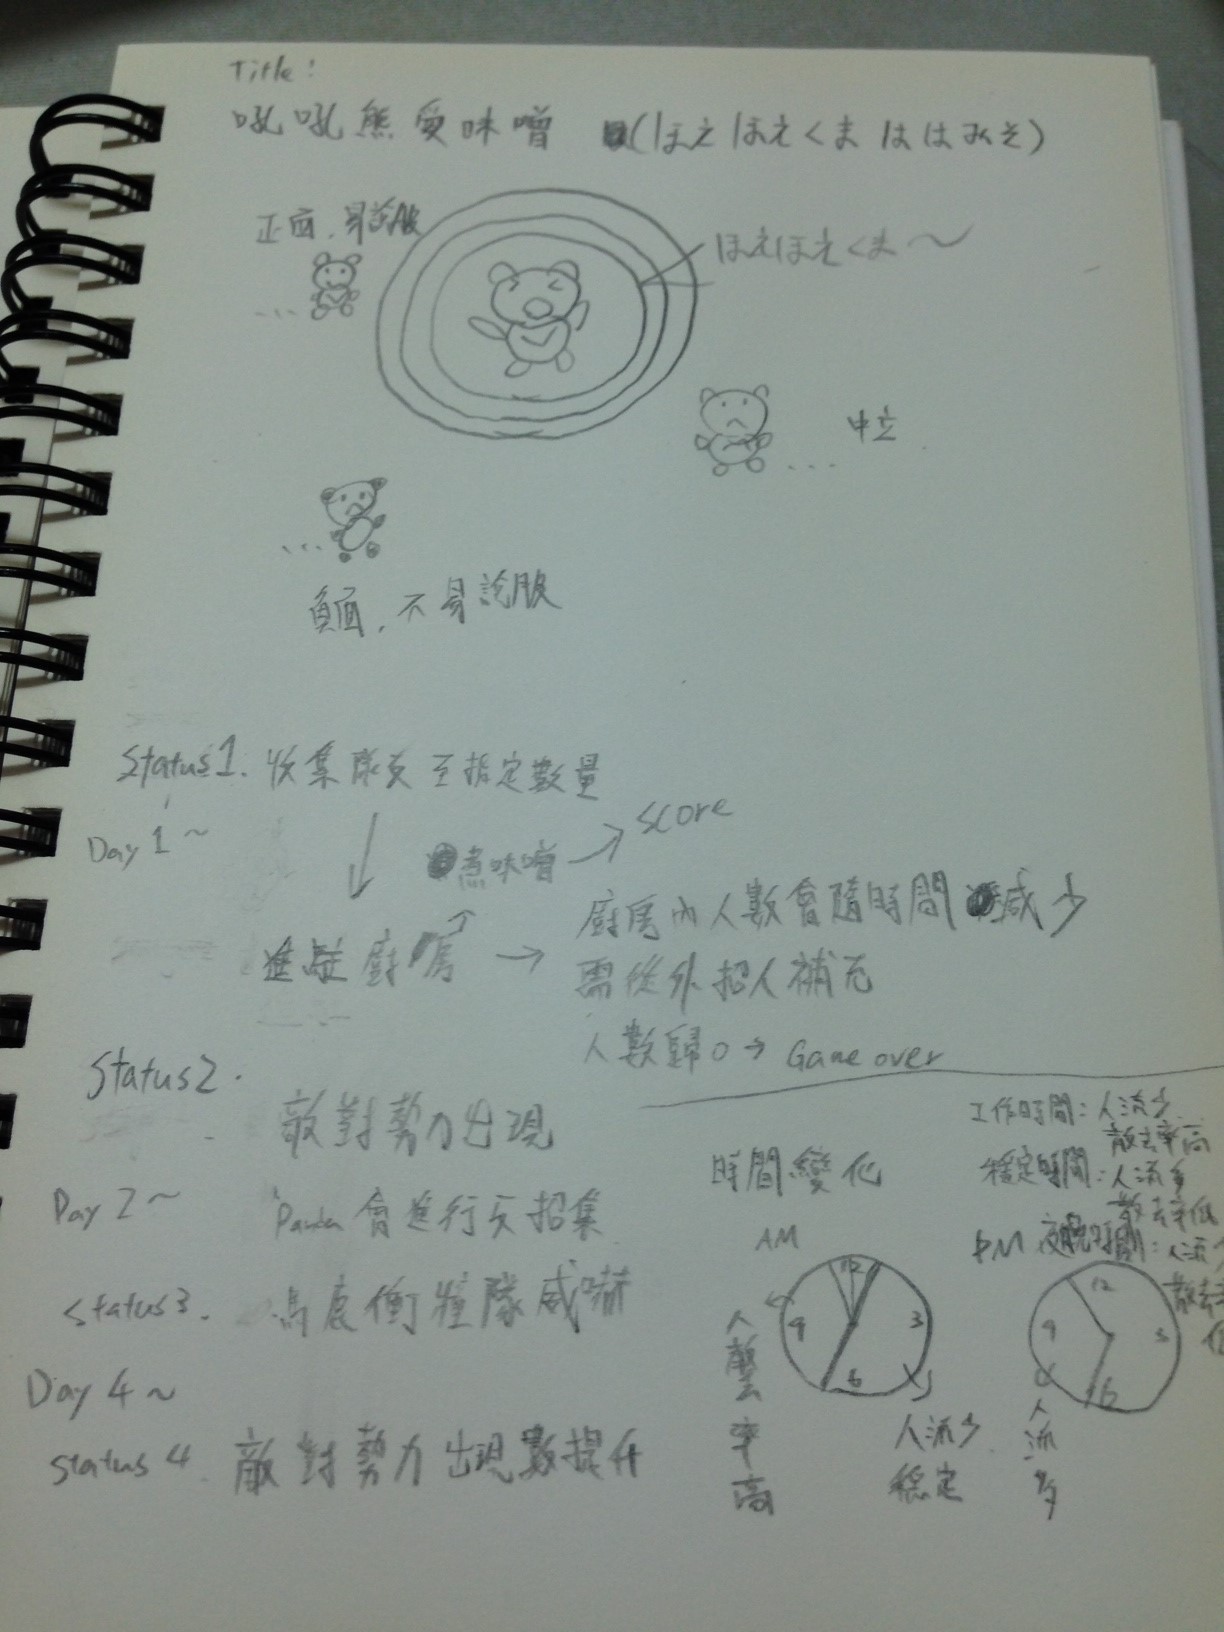 Title:
吼吼熊愛味噌 (ほえほえくま はは みそ)
正面, 易說服
ほえほえくま〜
...
中立
...
...
負面, 不易說服
Status1. 收集隊友至指定數量
Day 1 ~
煮味噌 → score
進駐廚房 →
廚房內人數會隨時間減少
需從外招人補充
人數歸0 → Game over
Status2.
敵對勢力出現
Day 2 ~
Panda 會進行反招集
Status3. 馬鹿衝撞隊威嚇
Day 4 ~
Status 4. 敵對勢力出現數提升
時間變化
工作時間: 人流少
散去率高
穩定時間: 人流多
散去率低
夜晚時間: 人流
散去
AM
12
3
6
9
人散去率高
人流少
穩定
PM
12
3
6
9
人流多